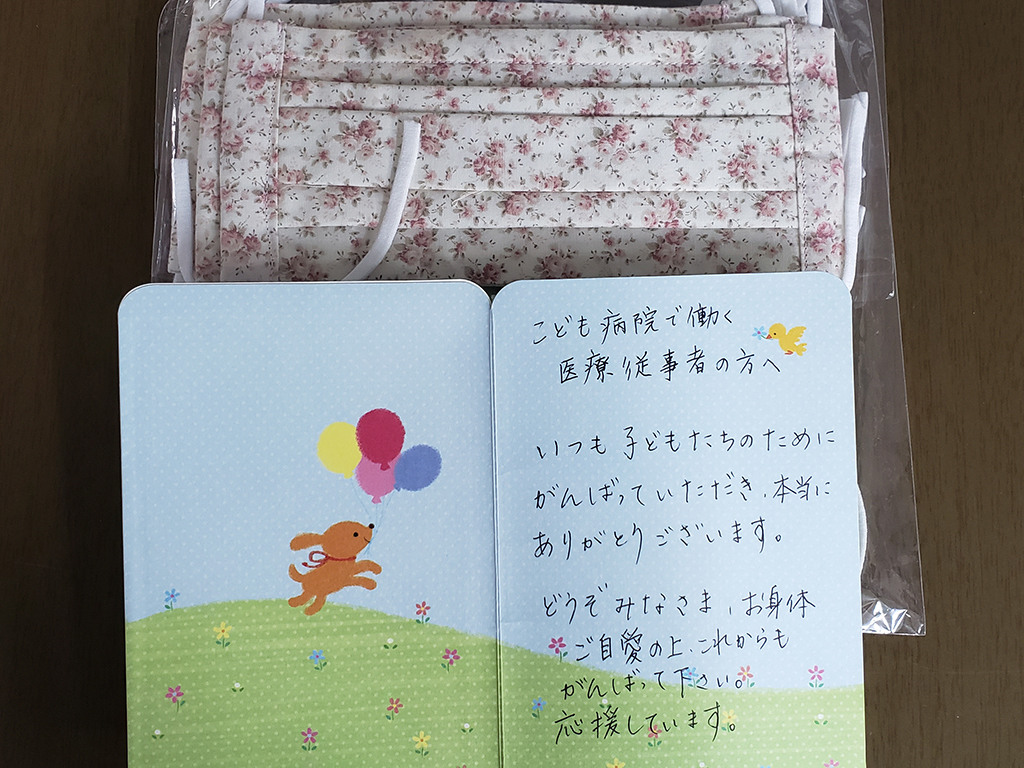 こども病院で働く
医療従事者の方へ
いつも子どもたちのために
がんばっていただき、本当に
ありがとうございます。
どうぞみなさま、お身体
ご自愛の上、これからも
がんばって下さい。
応援しています。